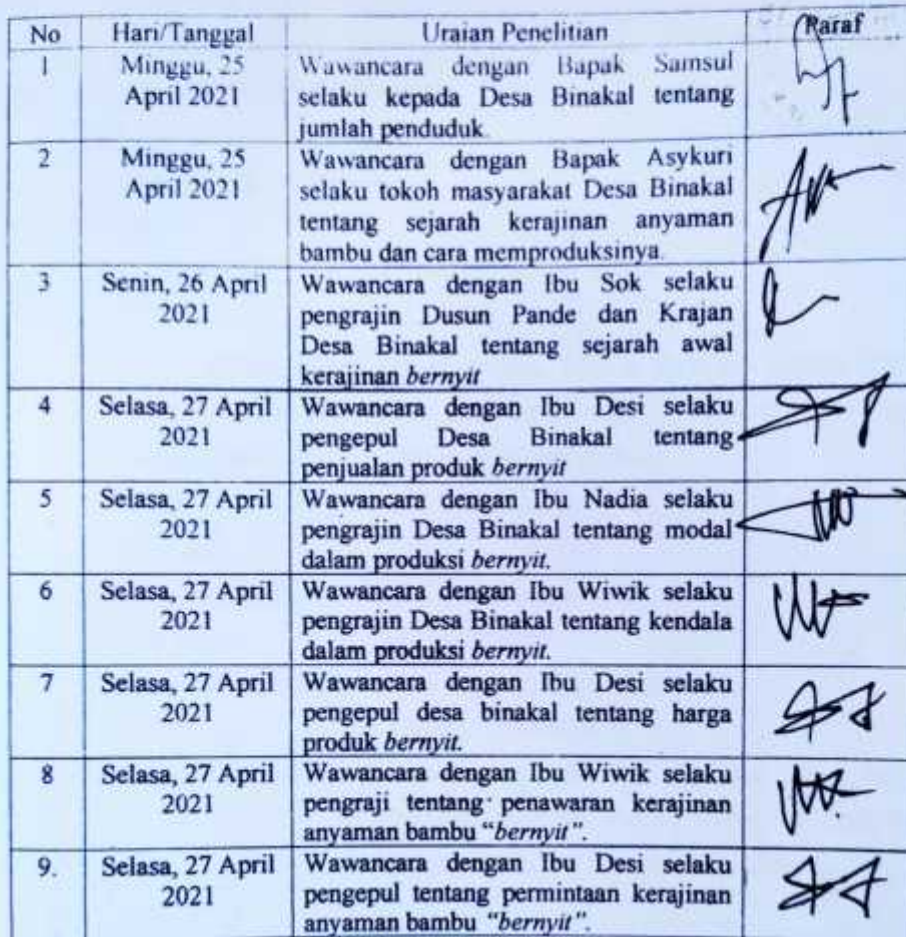 No Hari/Tanggal Uraian Penelitian Paraf
1 Minggu, 25 Wawancara dengan Bapak Samsul
April 2021 selaku kepada Desa Binakal tentang
jumlah penduduk
2 Minggu, 25 Wawancara dengan Bapak Asykuri
April 2021 selaku tokoh masyarakat Desa Binakal
tentang sejarah kerajinan anyaman
bambu dan cara memproduksinya.
3 Senin, 26 April Wawancara dengan Ibu Sok selaku
2021 pengrajin Dusun Pande dan Krajan
Desa Binakal tentang sejarah awal
kerajinan bernyit
4 Selasa, 27 April Wawancara dengan Ibu Desi selaku
2021 pengepul Desa Binakal tentang
penjualan produk bernyit
5 Selasa, 27 April Wawancara dengan Ibu Nadia selaku
2021 pengrajin Desa Binakal tentang modal
dalam produksi bernyit.
6 Selasa, 27 April Wawancara dengan Ibu Wiwik selaku
2021 pengrajin Desa Binakal tentang kendala
dalam produksi bernyit.
7 Selasa, 27 April Wawancara dengan Ibu Desi selaku
2021 pengepul desa binakal tentang harga
produk bernyit.
8 Selasa, 27 April Wawancara dengan Ibu Wiwik selaku
2021 pengraji tentang penawaran kerajinan
anyaman bambu "bernyit".
9. Selasa, 27 April Wawancara dengan Ibu Desi selaku
2021 pengepul tentang permintaan kerajinan
anyaman bambu "bernyit".